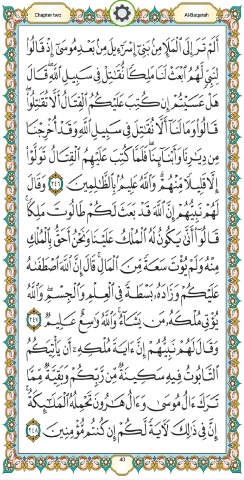 Chapter two
Al-Baqarah
أَلَمْ تَرَ إِلَى ٱلْمَلَإِ مِنۢ بَنِىٓ إِسْرَٰٓءِيلَ مِنۢ بَعْدِ مُوسَىٰٓ إِذْ قَالُوا۟
لِنَبِىٍّ لَّهُمُ ٱبْعَثْ لَنَا مَلِكًا نُّقَٰتِلْ فِى سَبِيلِ ٱللَّهِ ۖ قَالَ
هَلْ عَسَيْتُمْ إِن كُتِبَ عَلَيْكُمُ ٱلْقِتَالُ أَلَّا تُقَٰتِلُوا۟ ۖ
قَالُوا۟ وَمَا لَنَآ أَلَّا نُقَٰتِلَ فِى سَبِيلِ ٱللَّهِ وَقَدْ أُخْرِجْنَا
مِن دِيَٰرِنَا وَأَبْنَآئِنَا ۖ فَلَمَّا كُتِبَ عَلَيْهِمُ ٱلْقِتَالُ تَوَلَّوْا۟
إِلَّا قَلِيلًا مِّنْهُمْ ۗ وَٱللَّهُ عَلِيمٌۢ بِٱلظَّٰلِمِينَ ٢٤٦ وَقَالَ
لَهُمْ نَبِيُّهُمْ إِنَّ ٱللَّهَ قَدْ بَعَثَ لَكُمْ طَالُوتَ مَلِكًا ۚ
قَالُوٓا۟ أَنَّىٰ يَكُونُ لَهُ ٱلْمُلْكُ عَلَيْنَا وَنَحْنُ أَحَقُّ بِٱلْمُلْكِ
مِنْهُ وَلَمْ يُؤْتَ سَعَةً مِّنَ ٱلْمَالِ ۚ قَالَ إِنَّ ٱللَّهَ ٱصْطَفَىٰهُ
عَلَيْكُمْ وَزَادَهُۥ بَسْطَةً فِى ٱلْعِلْمِ وَٱلْجِسْمِ ۖ وَٱللَّهُ
يُؤْتِى مُلْكَهُۥ مَن يَشَآءُ ۚ وَٱللَّهُ وَٰسِعٌ عَلِيمٌ ٢٤٧
وَقَالَ لَهُمْ نَبِيُّهُمْ إِنَّ ءَايَةَ مُلْكِهِۦٓ أَن يَأْتِيَكُمُ
ٱلتَّابُوتُ فِيهِ سَكِينَةٌ مِّن رَّبِّكُمْ وَبَقِيَّةٌ مِّمَّا
تَرَكَ ءَالُ مُوسَىٰ وَءَالُ هَٰرُونَ تَحْمِلُهُ ٱلْمَلَٰٓئِكَةُ ۚ
إِنَّ فِى ذَٰلِكَ لَءَايَةً لَّكُمْ إِن كُنتُم مُّؤْمِنِينَ ٢٤٨
40